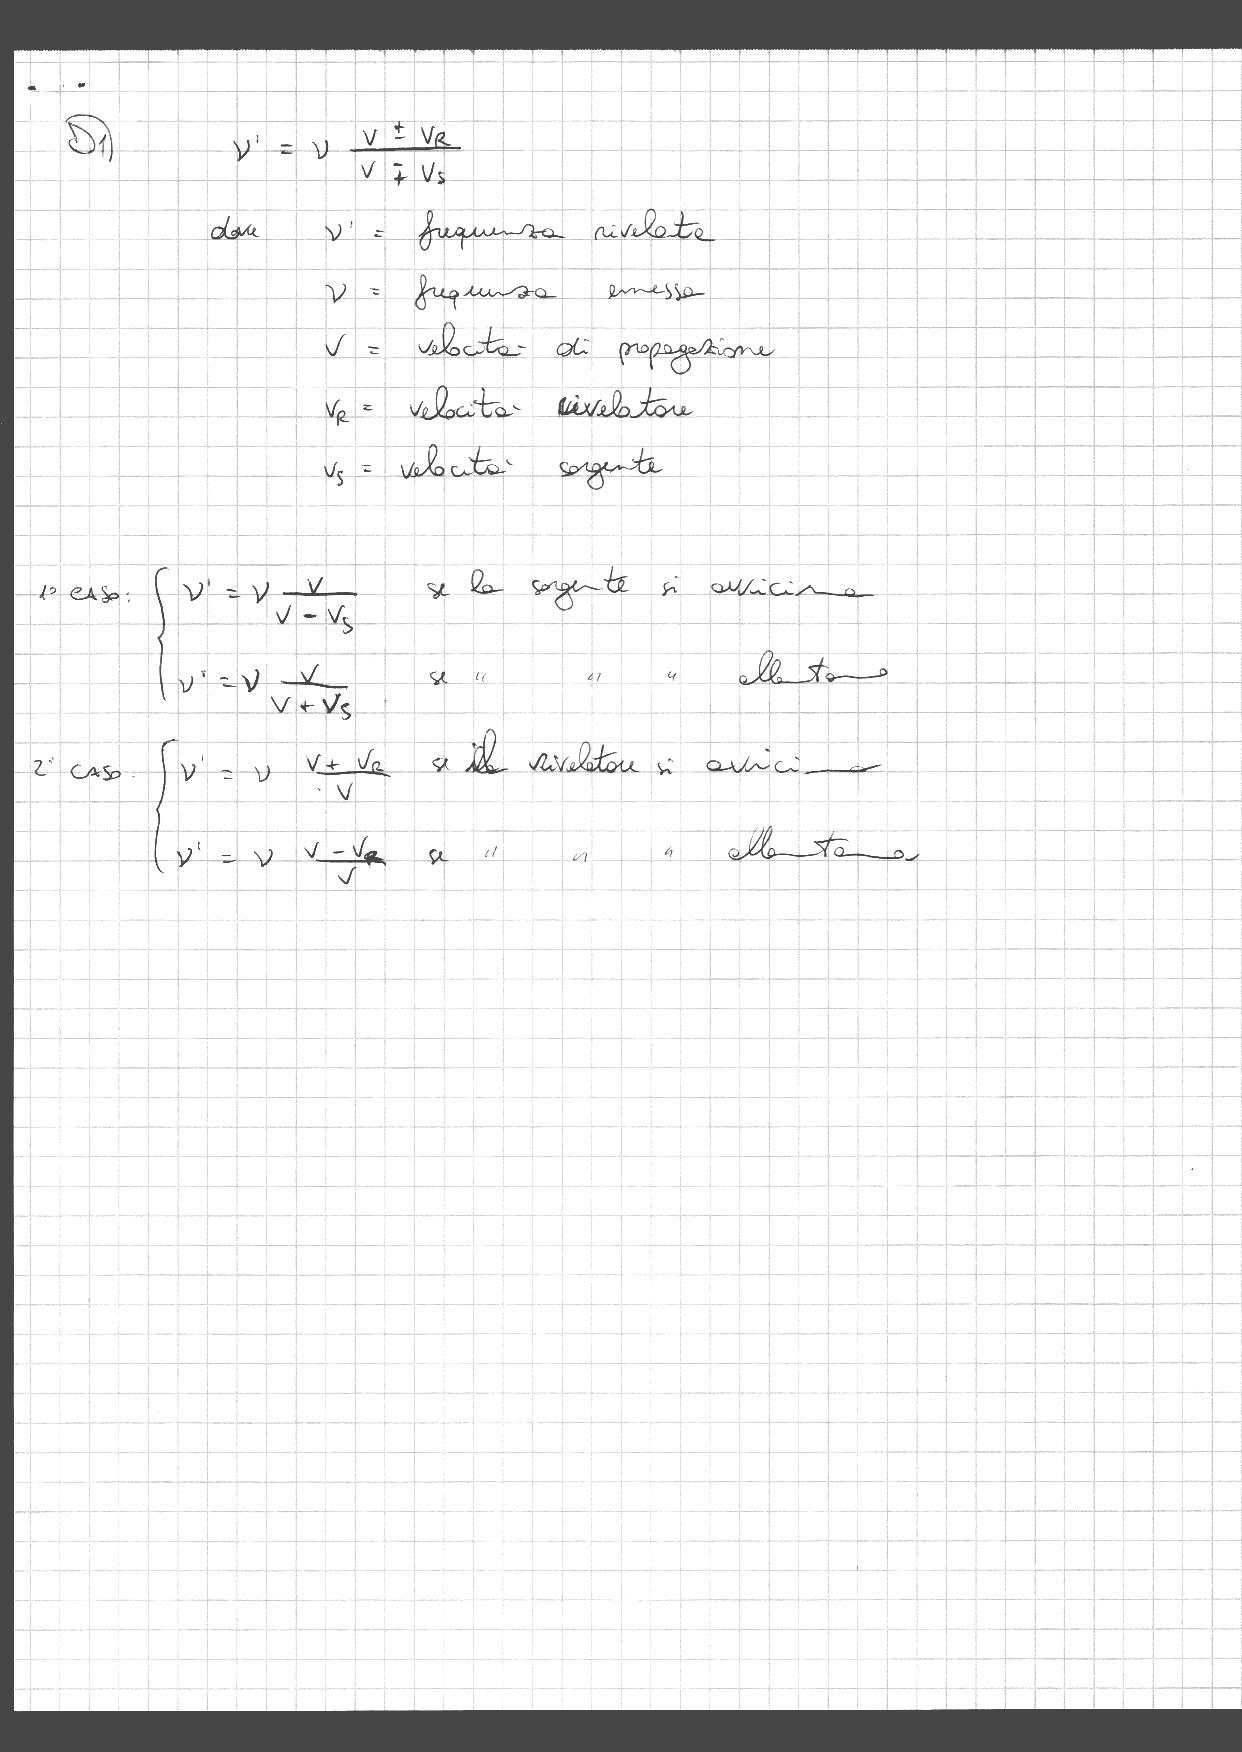 D1) ν' = ν (V ± V_R) / (V ∓ V_S)
dove ν' = frequenza rivelata
ν = frequenza emessa
V = velocità di propagazione
V_R = velocità rivelatore
V_S = velocità sorgente
1° CASO: { ν' = ν V / (V - V_S) se la sorgente si avvicina
ν' = ν V / (V + V_S) se " " " allontana
2° CASO: { ν' = ν (V + V_R) / V se il rivelatore si avvicina
ν' = ν (V - V_R) / V se " " " allontana